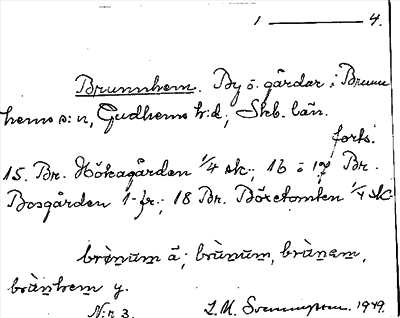 1 ——— 4.
Brunnhem. By o. gårdar i Brunn
hems s:n, Gudhems h:d, Skb. län.
forts.
15. Br. Hökagården 1/4 sk.; 16 o 17 Br.
Bosgården 1 fr.; 18 Br. Böretomten 1/4 sk
brønum ä; brùnum, brùnem,
brùnhem y.
N:r 3. L. M. Svennungsson. 1949.